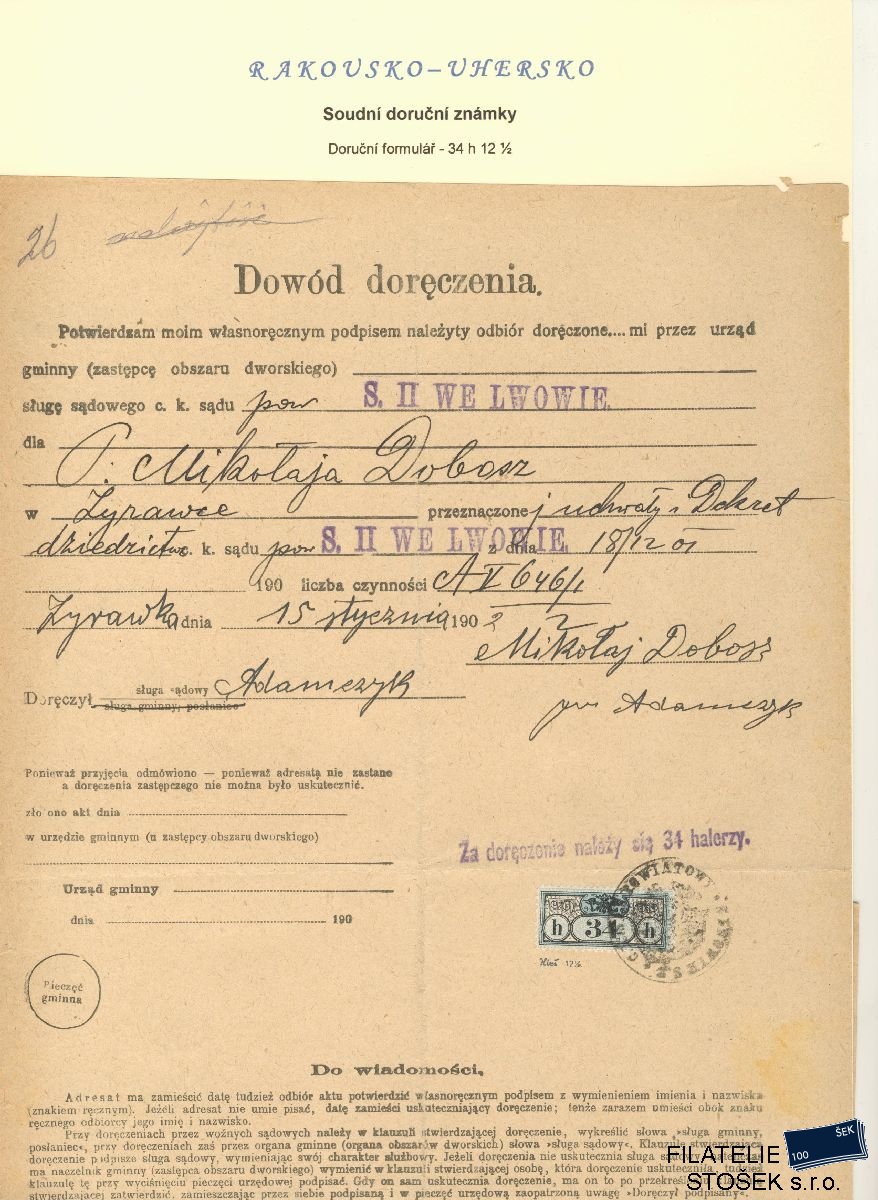 RAKOUSKO–UHERSKO
Soudní doruční známky
Doruční formulář - 34 h 12 ½
26
Dowód doręczenia.
Potwierdzam moim własnoręcznym podpisem należyty odbiór doręczone.... mi przez urząd
gminny (zastępcę obszaru dworskiego)
sługę sądowego c. k. sądu pow S. II WE LWOWIE.
dla
P. Mikołaja Dobosz
w Żyrawce przeznaczone j uchwały i Dekret
dziedzictwa c. k. sądu pow S. II WE LWOWIE. z dnia 18/12 01
190 liczba czynności A V 646/1
Żyrawka dnia 15 stycznia 190 2
Mikołaj Dobosz
Doręczył sługa sądowy Adamczyk
sługa gminny, posłaniec
Adamczyk
Ponieważ przyjęcia odmówiono — ponieważ adresatą nie zastano
a doręczenia zastępczego nie można było uskutecznić.
zło ono akt dnia
w urzędzie gminnym (u zastępcy obszaru dworskiego)
Za doręczenie należy się 34 halerzy.
Urząd gminny
dnia 190
h 34 h
12½
Pieczęć
gminna
Do wiadomości.
Adresat ma zamieścić datę tudzież odbiór aktu potwierdzić własnoręcznym podpisem z wymienieniem imienia i nazwiska
(znakiem ręcznym). Jeżeli adresat nie umie pisać, datę zamieści uskuteczniający doręczenie; tenże zarazem umieści obok znaku
ręcznego odbiorcy jego imię i nazwisko.
Przy doręczeniach przez woźnych sądowych należy w klauzuli stwierdzającej doręczenie, wykreślić słowa »sługa gminny,
posłaniec«, przy doręczeniach zaś przez organa gminne (organa obszarów dworskich) słowa »sługa sądowy«. Klauzulę stwierdzającą
doręczenie podpisze sługa sądowy, wymieniając swój charakter służbowy. Jeżeli doręczenia nie uskutecznia sługa
ma naczelnik gminny (zastępca obszaru dworskiego) wymienić w klauzuli stwierdzającej osobę, która doręczenie uskuteczniła, tudzież
klauzulę tę przy wyciśnięciu pieczęci urzędowej podpisać. Gdy on sam uskutecznia doręczenie, ma on to po
stwierdzającej zatwierdzić, zamieszczając przez siebie podpisaną i w pieczęć urzędową zaopatrzoną uwagę »Doręczył podpisany«.
100 ŠEK
FILATELIE
STOSEK s.r.o.